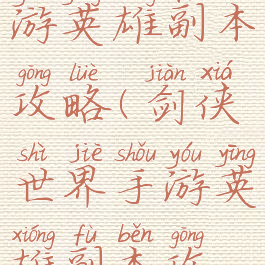 游英雄副本
gōng lüè jiàn xiá
攻略(剑侠
shì jiè shǒu yóu yīng
世界手游英
xióng fù běn gōng
雄副本攻